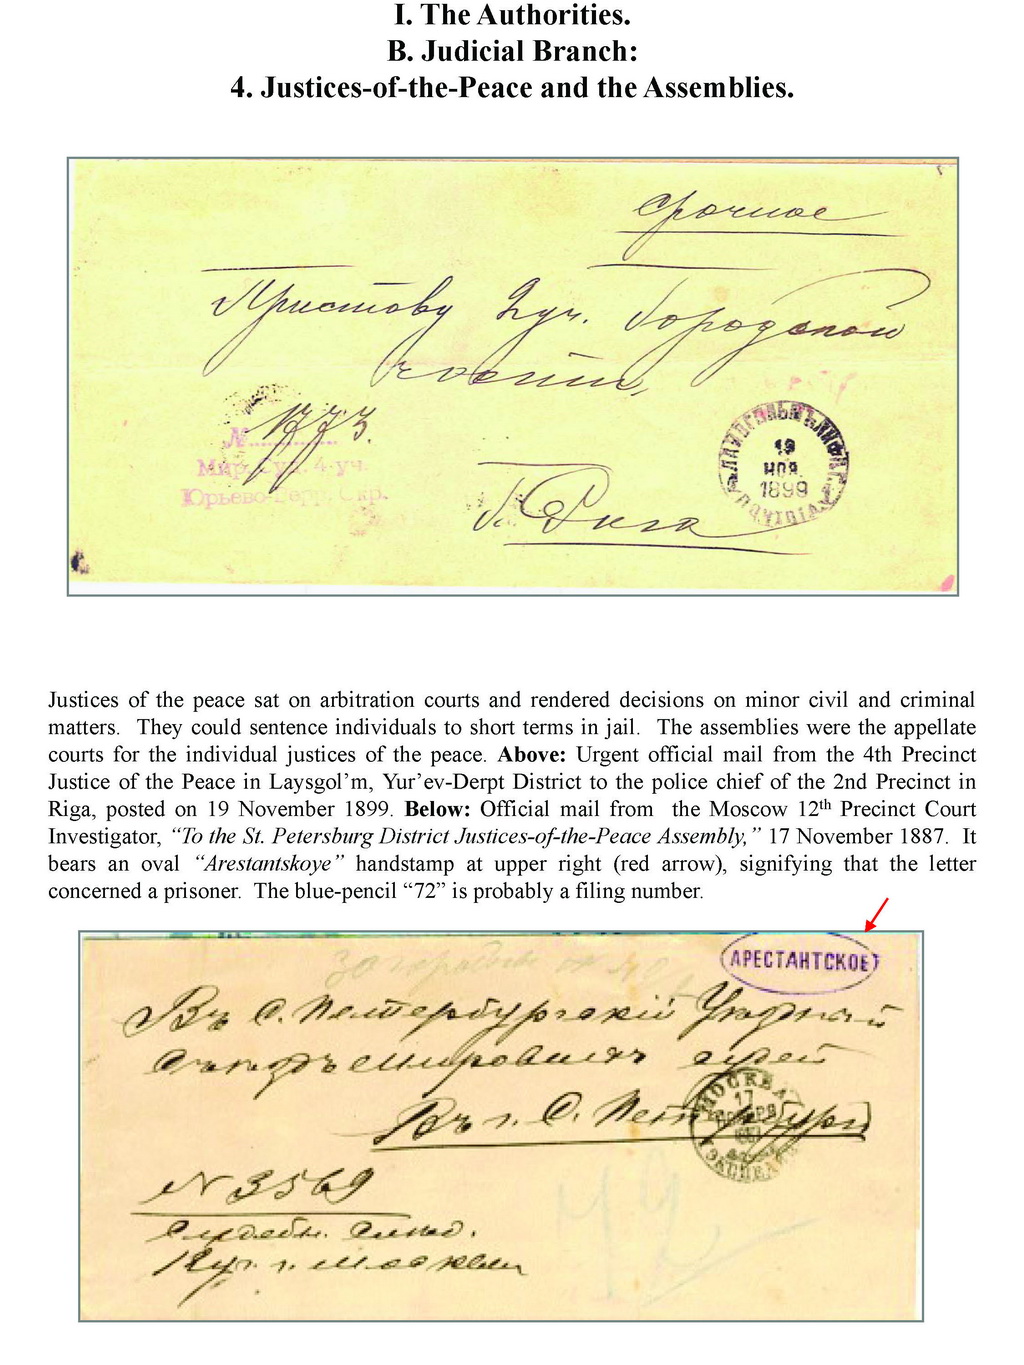 I. The Authorities.
B. Judicial Branch:
4. Justices-of-the-Peace and the Assemblies.
Срочное
Приставу 2 уч. Городской
части,
№ 1773.
Мир. Суд. 4 уч.
Юрьево-Верр. Окр.
Г. Рига
19
НОЯ.
1899
Justices of the peace sat on arbitration courts and rendered decisions on minor civil and criminal
matters. They could sentence individuals to short terms in jail. The assemblies were the appellate
courts for the individual justices of the peace. Above: Urgent official mail from the 4th Precinct
Justice of the Peace in Laysgol’m, Yur’ev-Derpt District to the police chief of the 2nd Precinct in
Riga, posted on 19 November 1899. Below: Official mail from the Moscow 12th Precinct Court
Investigator, “To the St. Petersburg District Justices-of-the-Peace Assembly,” 17 November 1887. It
bears an oval “Arestantskoye” handstamp at upper right (red arrow), signifying that the letter
concerned a prisoner. The blue-pencil “72” is probably a filing number.
АРЕСТАНТСКОЕ
Въ С. Петербургскiй Уѣздный
Съѣздъ Мировыхъ судей
Въ г. С. Петербургъ
МОСКВА
17
№ 3569
Судебн. Слѣд.
12 уч. г. Москвы
72